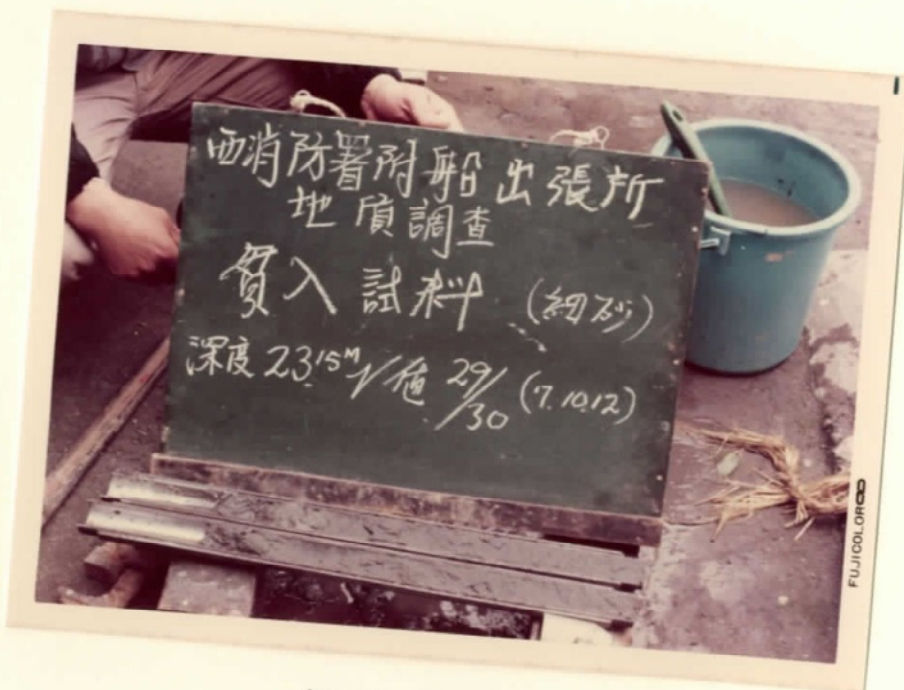 西消防署附船出張所
地质調査
貫入試料 (細砂)
深度 23.15M N値 29/30 (7.10.12)
FUJICOLOR